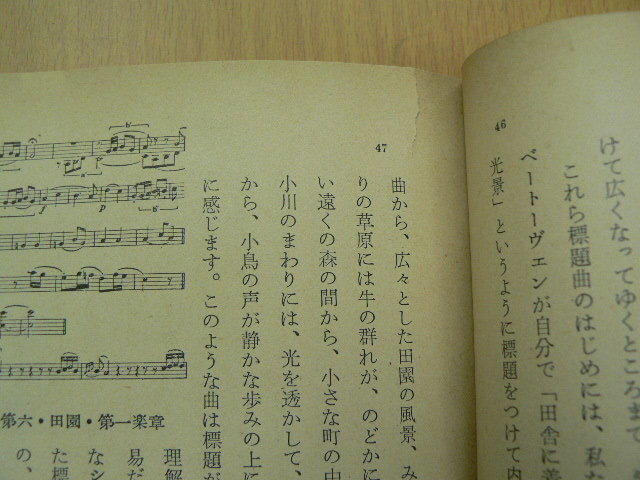 46
けて広くなってゆくところまで
これら標題曲のはじめには、私
ベートーヴェンが自分で「田舎に善
光景」というように標題をつけて内
47
曲から、広々とした田園の風景、み
りの草原には牛の群れが、のどかに
い遠くの森の間から、小さな町の中
小川のまわりには、光を透かして、
から、小鳥の声が静かな歩みの上に
に感じます。このような曲は標題が
第六・田園・第一楽章
理解
易だ
なシ
た標
の、